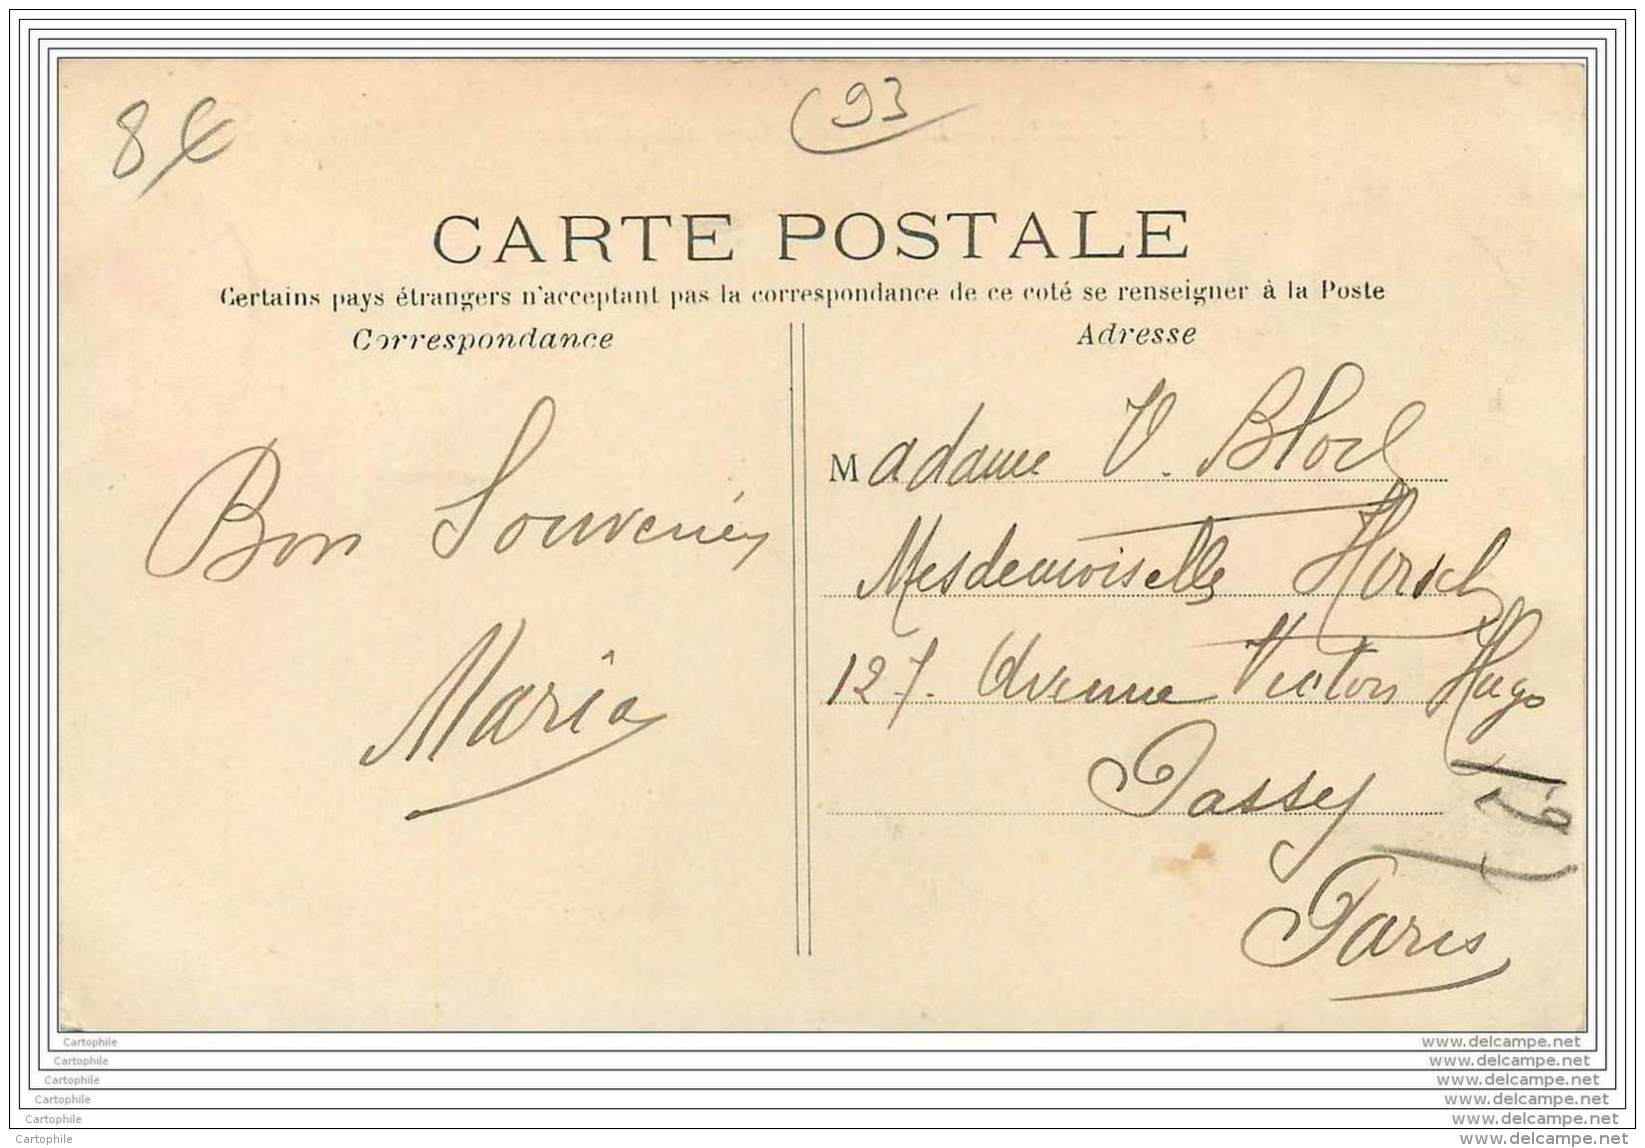 8€
93
CARTE POSTALE
Certains pays étrangers n'acceptant pas la correspondance de ce coté se renseigner à la Poste
Correspondance
Bon Souvenir
Maria
Adresse
Madame V. Bloch
Mesdemoiselles Hirsch
127. Avenue Victor Hugo
Passy
Paris
Cartophile
Cartophile
Cartophile
Cartophile
Cartophile
Cartophile
www.delcampe.net
www.delcampe.net
www.delcampe.net
www.delcampe.net
www.delcampe.net
www.delcampe.net